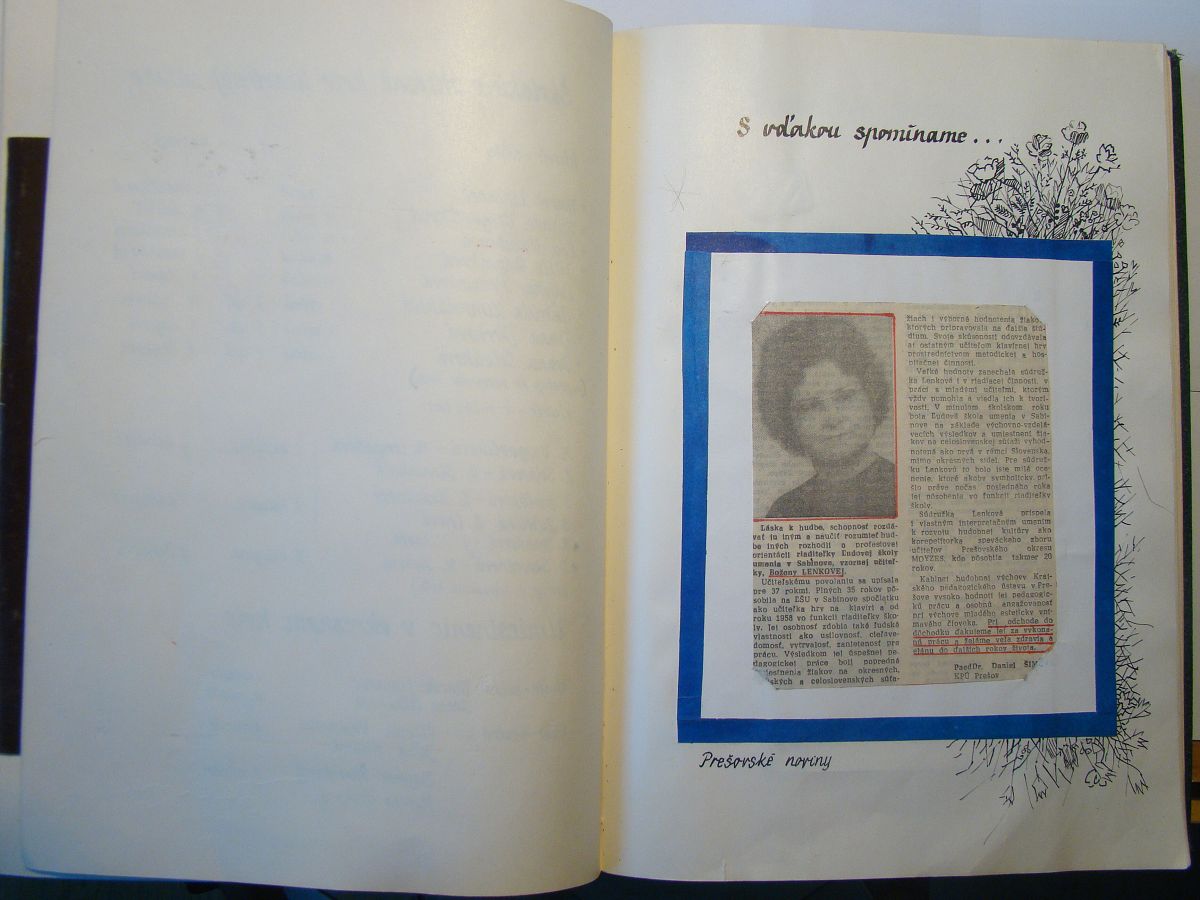 S vďakou spomíname...
Láska k hudbe, schopnosť rozdá-
vať ju iným a naučiť rozumieť hud-
be iných rozhodli o profesijnej
orientácii riaditeľky Ľudovej školy
umenia v Sabinove, vzornej učiteľ-
ky, Boženy LENKOVEJ.
Učiteľskému povolaniu sa upísala
pre 37 rokmi. Plných 35 rokov pô-
sobila na ĽŠU v Sabinove spočiatku
ako učiteľka hry na klavíri a od
roku 1958 vo funkcii riaditeľky ško-
ly. Jej osobnosť zdobia také ľudské
vlastnosti ako usilovnosť, cieľave-
domosť, vytrvalosť, zanietenosť pre
prácu. Výsledkom jej úspešnej pe-
dagogickej práce boli popredné
umiestnenia žiakov na okresných,
krajských a celoslovenských súťa-
žiach i výborné hodnotenia žiako
ktorých pripravovala na ďalšie štú-
dium. Svoje skúsenosti odovzdávala
aj ostatným učiteľom klavírnej hry
prostredníctvom metodickej a hos-
pitačnej činnosti.
Veľké hodnoty zanechala súdruž-
ka Lenková i v riadiacej činnosti, v
práci s mladými učiteľmi, ktorým
vždy pomohla a viedla ich k tvori-
vosti. V minulom školskom roku
bola Ľudová škola umenia v Sabi-
nove na základe výchovno-vzdelá-
vacích výsledkov a umiestnení žia-
kov na celoslovenskej súťaži vyhod-
notená ako prvá v rámci Slovenska,
mimo okresných sídel. Pre súdruž-
ku Lenkovú to bolo iste milé oce-
nenie, ktoré akoby symbolicky pri-
šlo práve počas posledného roka
jej pôsobenia vo funkcii riaditeľky
školy.
Súdružka Lenková prispela
i vlastným interpretačným umením
k rozvoju hudobnej kultúry ako
korepetítorka speváckeho zboru
učiteľov Prešovského okresu
MOYZES, kde pôsobila takmer 20
rokov.
Kabinet hudobnej výchovy Kraj-
ského pedagogického ústavu v Pre-
šove vysoko hodnotí jej pedagogic-
kú prácu a osobnú angažovanosť
pri výchove mladého esteticky vní-
mavého človeka. Pri odchode do
dôchodku ďakujeme jej za vykona-
nú prácu a želáme veľa zdravia a
elánu do ďalších rokov života.
PaedDr. Daniel
KPÚ Prešov
Prešovské noviny